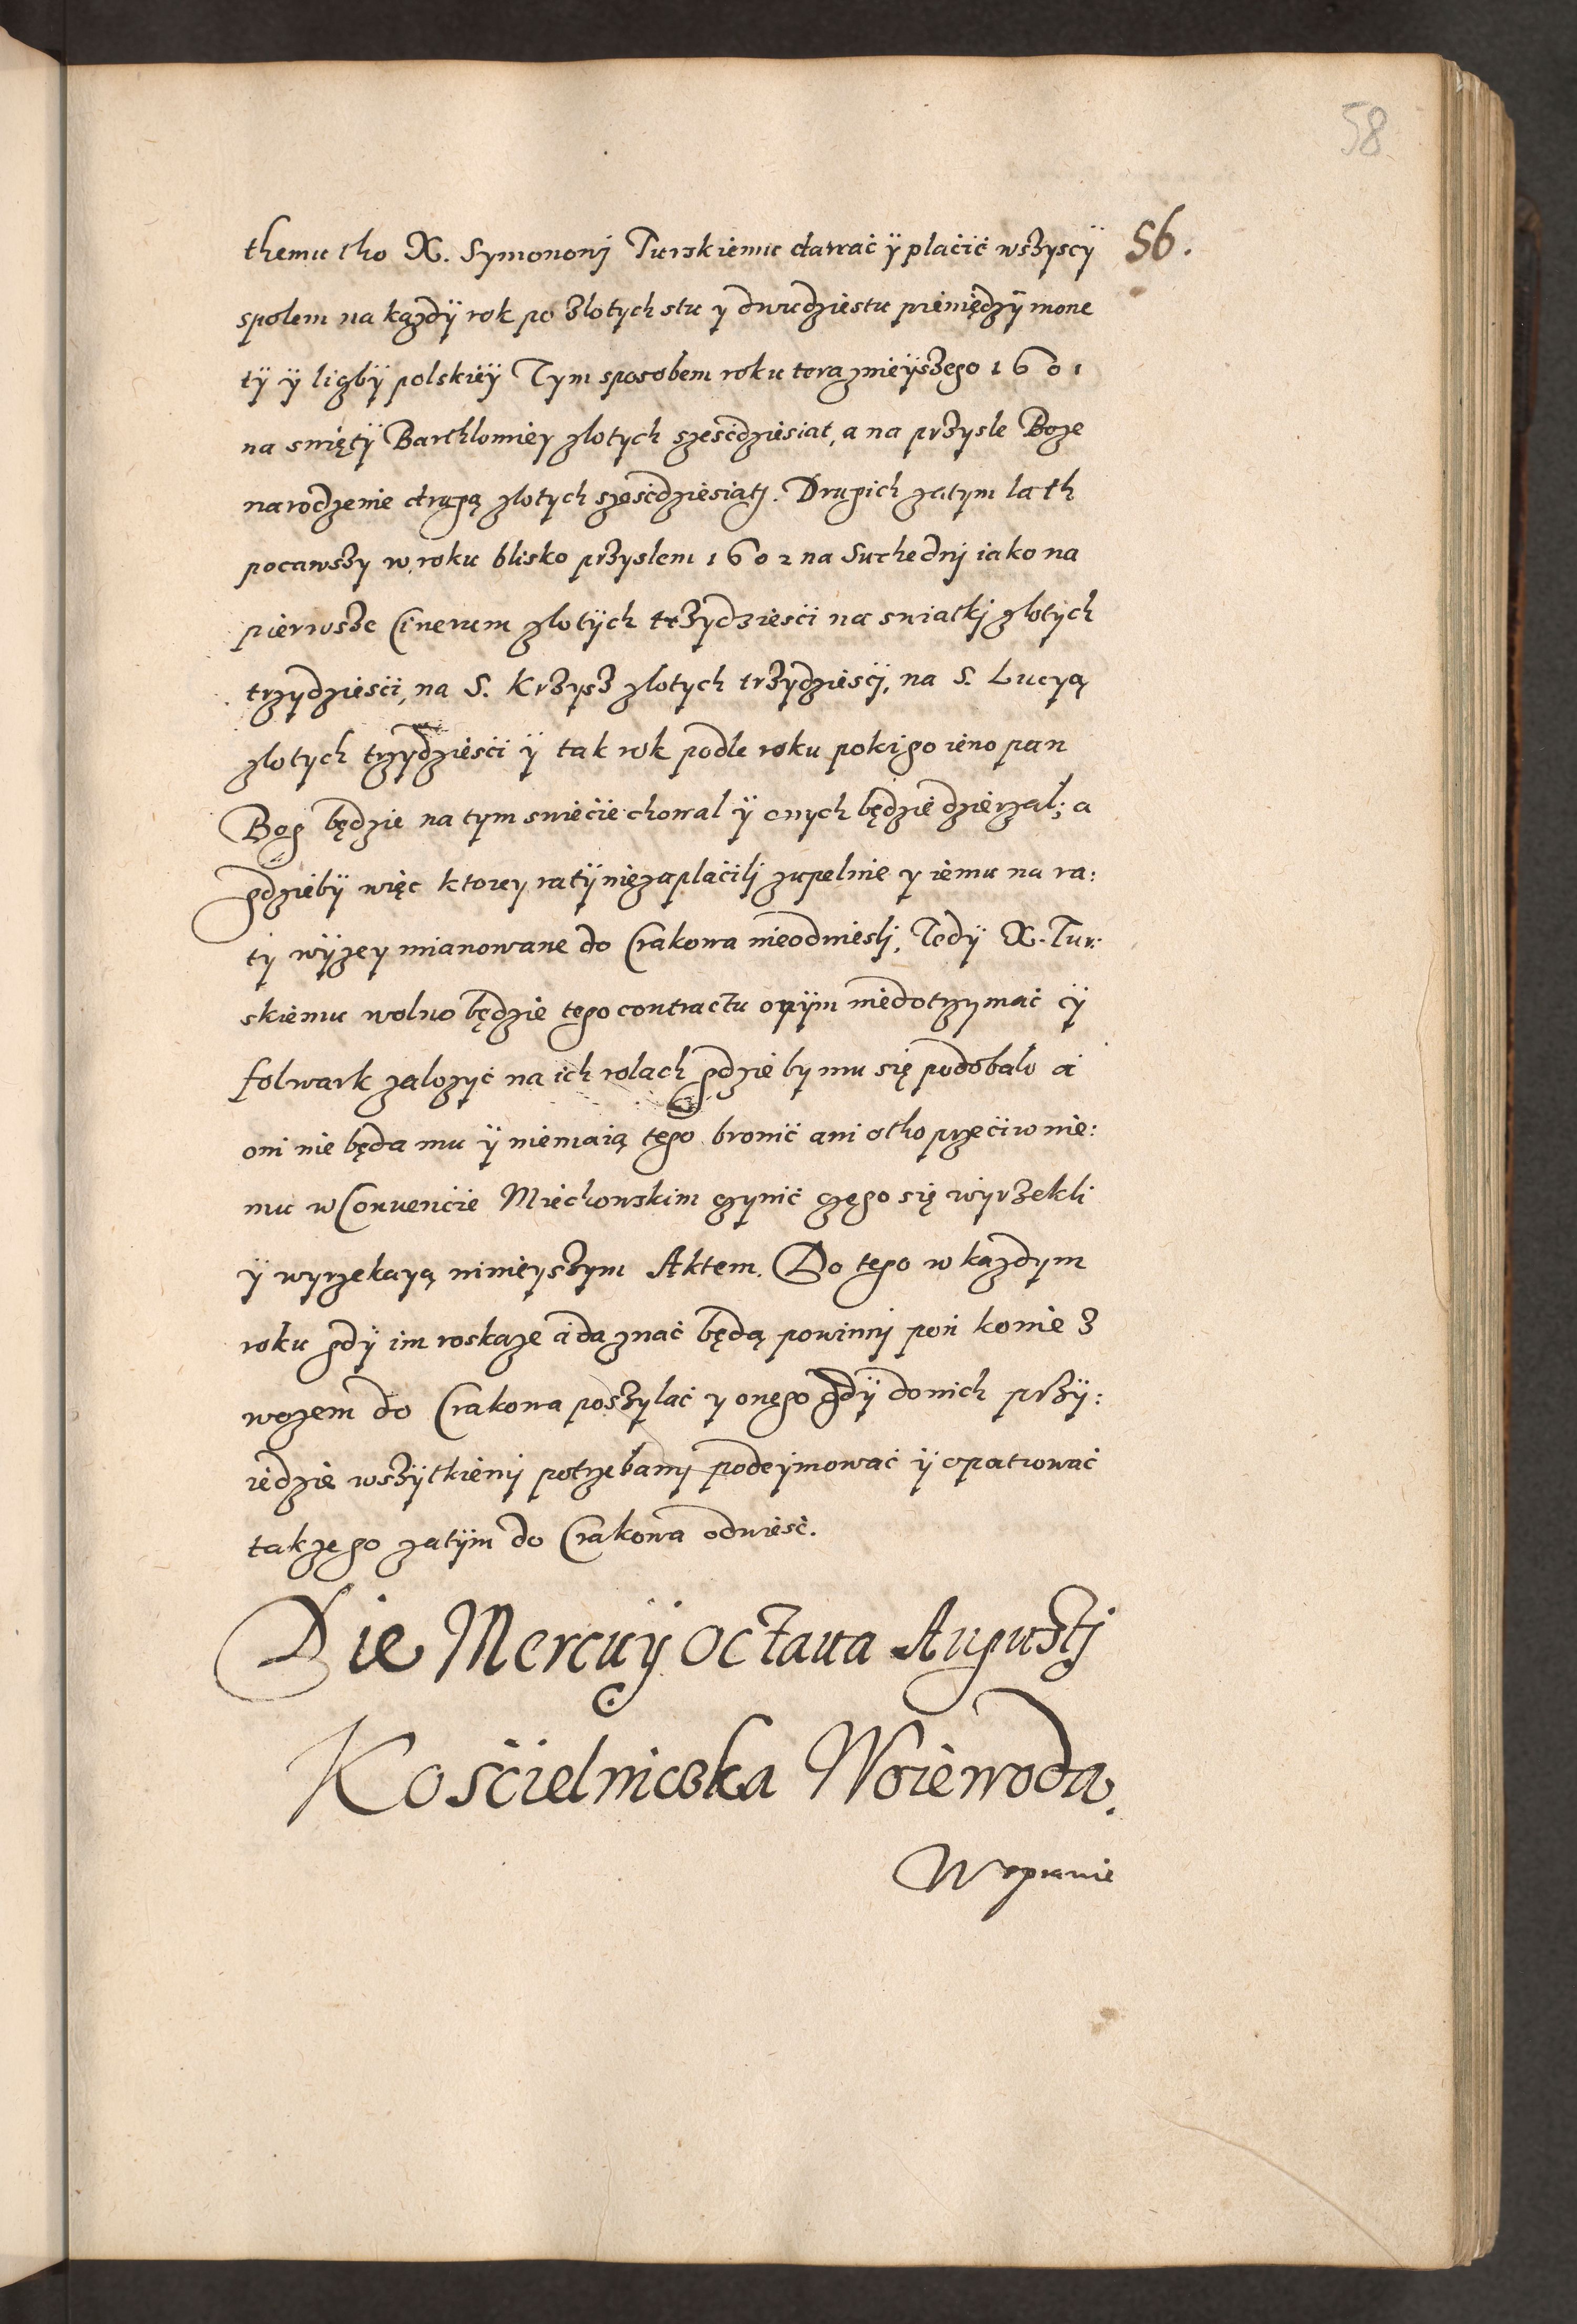 58
themu tho X. Symononj Turskiemu dawać ÿ płaćić wszyscÿ 56.
spolem na każdÿ rok po zlotych stu y dwudziestu pieniędzÿ mone
tÿ ÿ liczbÿ polskieÿ Tym sposobem roku teraznieÿszego 1601
na swiętÿ Barthlomiey zlotych sześćdziesiat, a na przysle Boże
narodzenie drugą zlotych sześćdziesiątj. Drugich zatym lath
pocawszy w roku blisko przyslem 1602 na Suchednj iako na
pierwsze Cinerum zlotÿch trzydziesći na swiatkj zlotych
trzydziesći, na S. Krzyż zlotych trzydziesćj, na S. Lucyą
zlotych trzydziesći ÿ tak rok podle roku pokigo ieno pan
Bog będzie na tym swiećie chowal ÿ onych będzie dzierzal; a
gdziebÿ więc ktorey ratÿ niezaplaćilj zupelnie y iemu na ra:
ty wÿzey mianowane do Crakowa nieodnieslj, Tedÿ X. Tur:
skiemu wolno będzie tego contractu onÿm niedotrzymać ÿ
folwark zalozyć na ich rolach gdzie by mu się podobalo a
oni nie będa mu ÿ niemaią tego bronić ani otho przećiw nie:
mu w Conuenćie Miechowskim czynić czego się wÿrzekli
ÿ wyrzekayą ninieyszym Aktem. Do tego w kazdym
roku gdÿ im roskaze a da znać będą powinnj poń konie z
wozem do Crakowa poszylać y onego gdÿ donich przÿ:
iedzie wszÿtkiemj potrzebamj podeymować ÿ opatrować
takze go zatÿm do Crakowa odwiesć.
Die Mercuÿ octaua Augustj
Kośćielniczka Woiewoda.
W sprawie